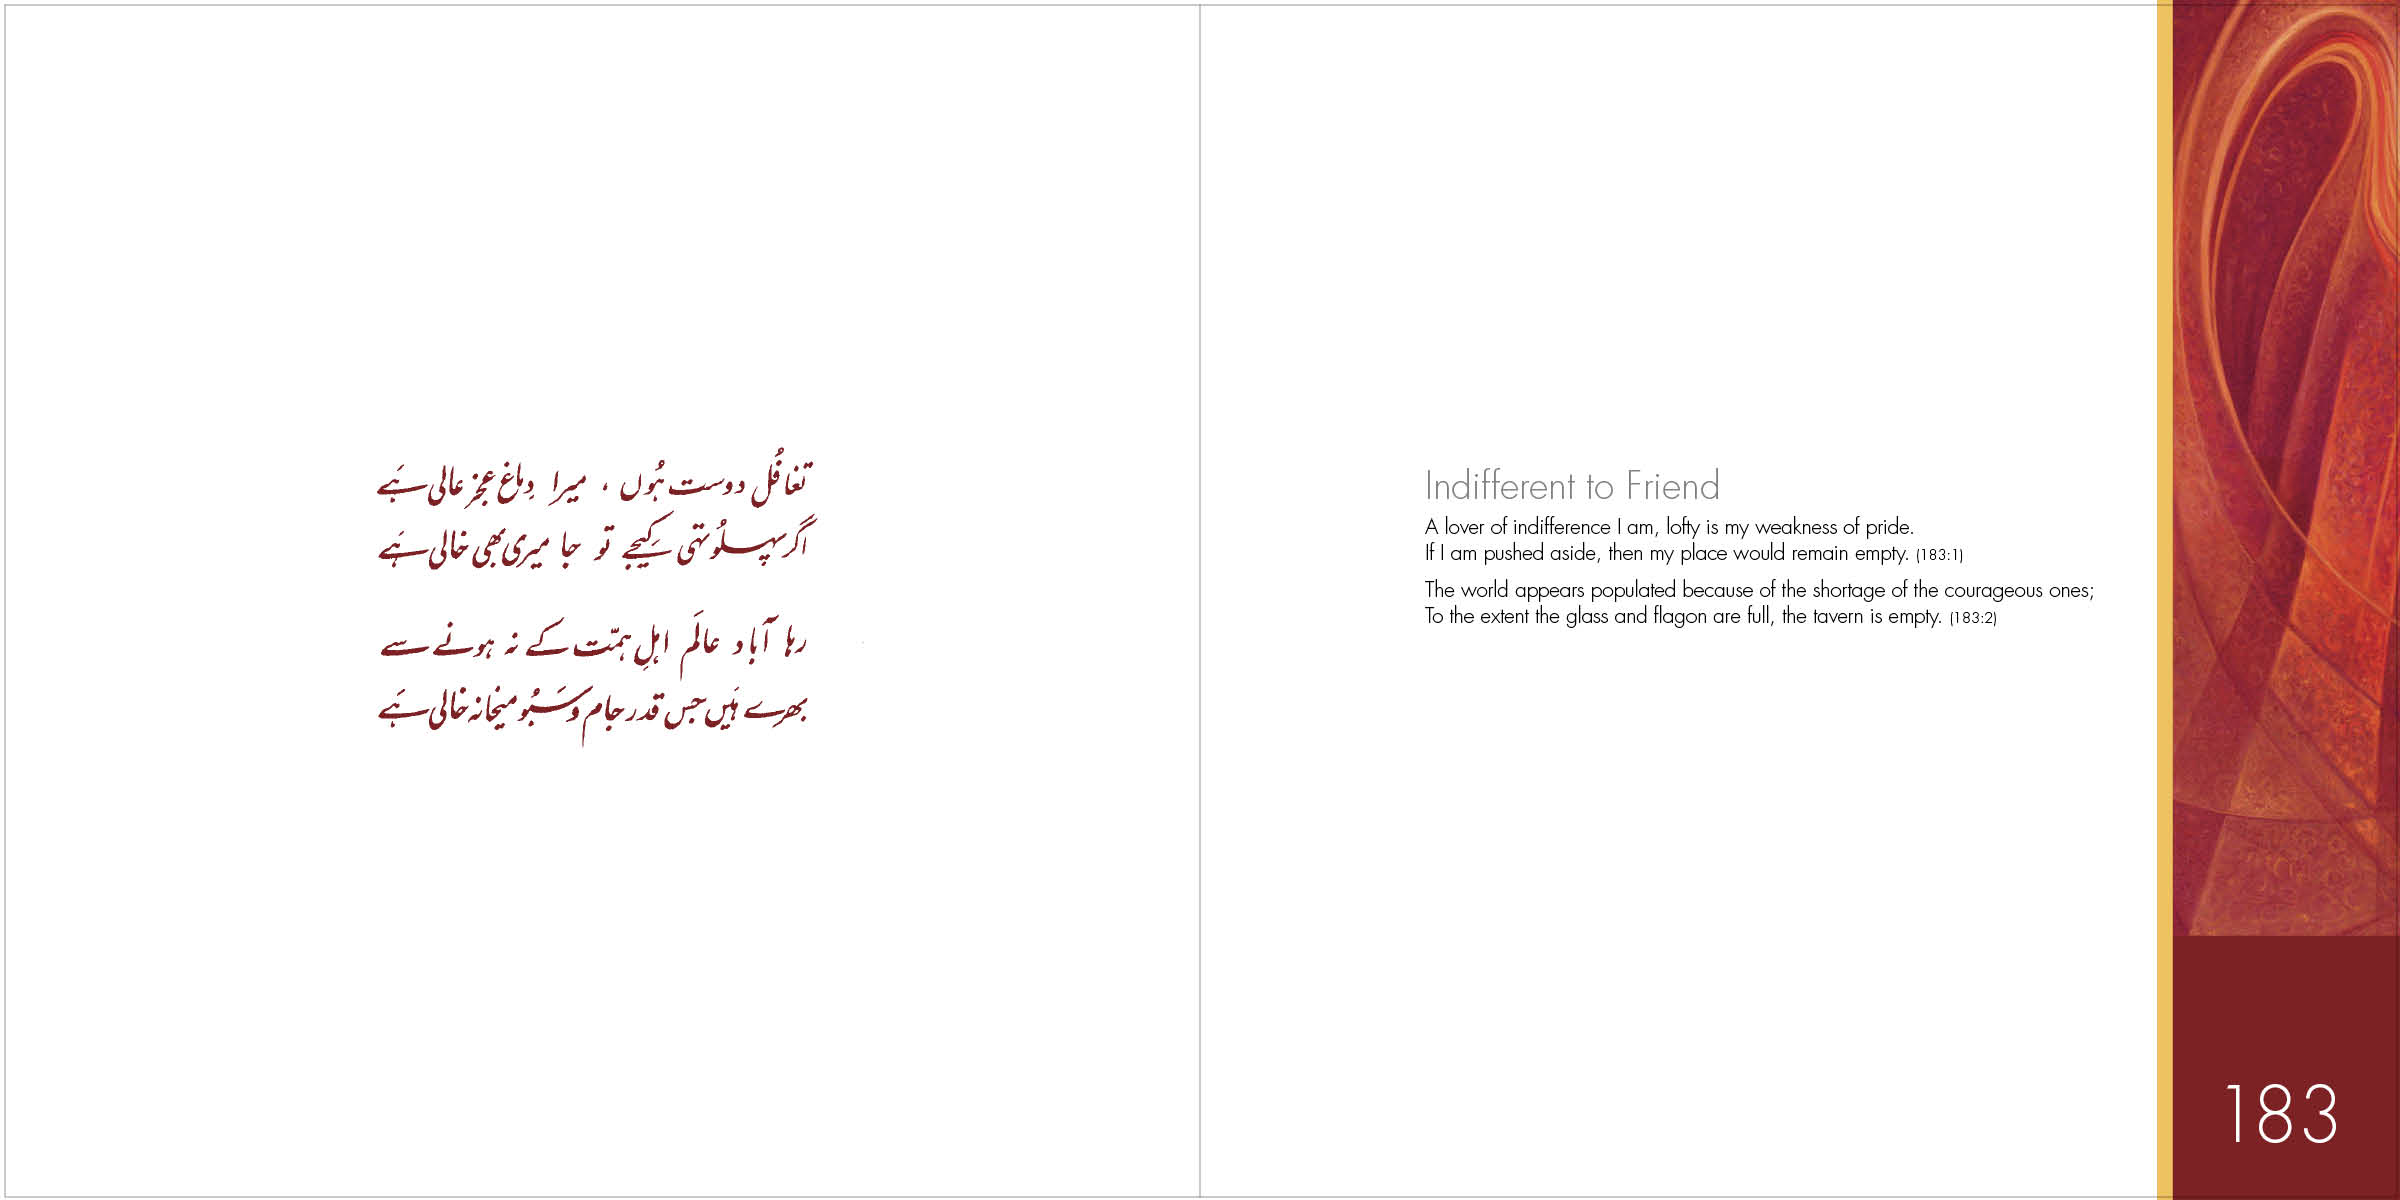 تغافُل دوست ہُوں ، میرا دِماغِ عجز عالی ہَے
اگر پہلُو تہی کیجے تو جا میری بھی خالی ہَے
رہا آباد عالَم اہلِ ہمّت کے نہ ہونے سے
بھرے ہَیں جس قدر جام و سَبُو میخانہ خالی ہَے
Indifferent to Friend
A lover of indifference I am, lofty is my weakness of pride.
If I am pushed aside, then my place would remain empty. (183:1)
The world appears populated because of the shortage of the courageous ones;
To the extent the glass and flagon are full, the tavern is empty. (183:2)
183